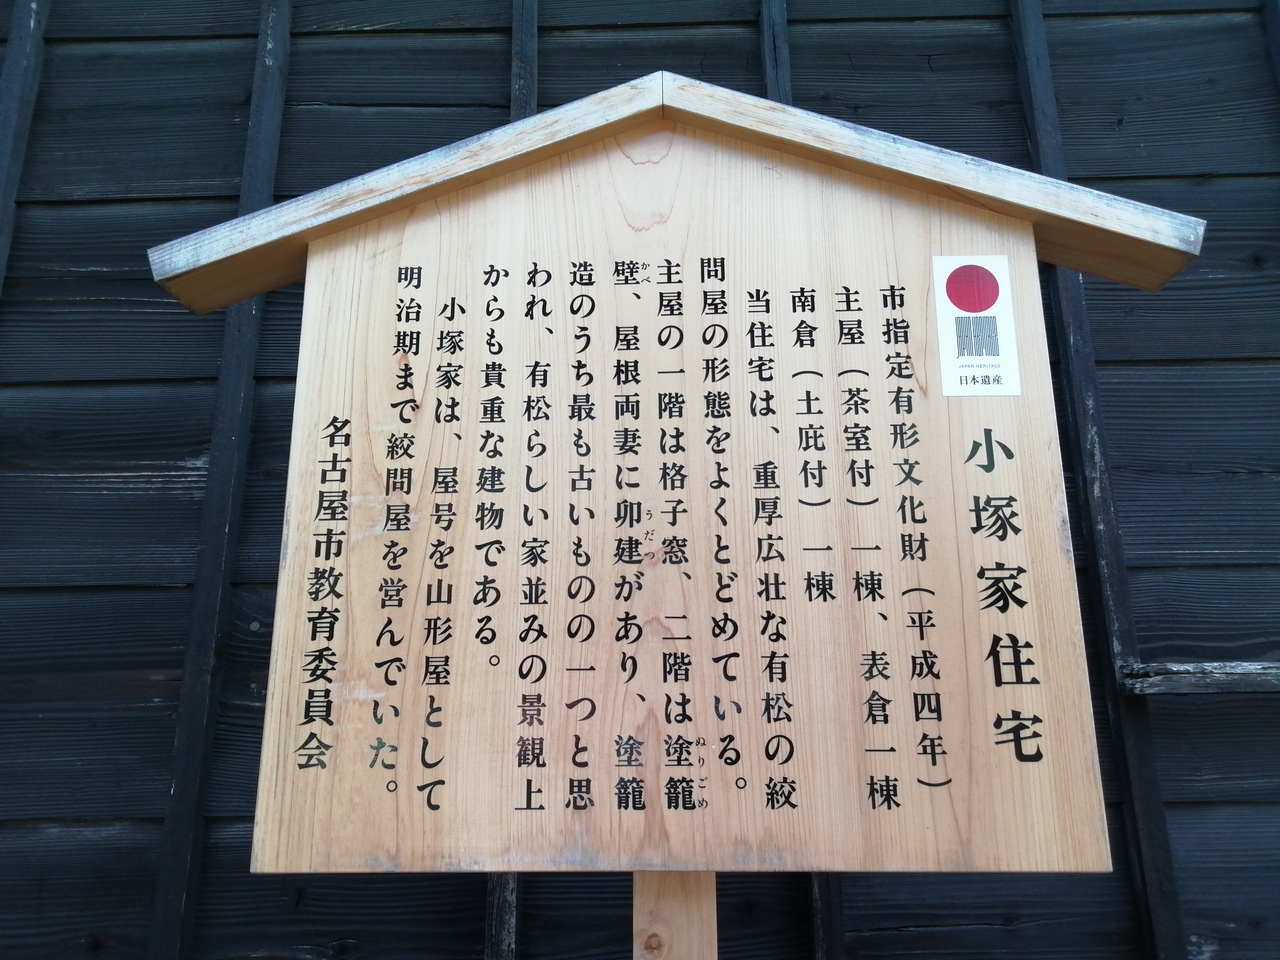 小塚家住宅
市指定有形文化財（平成四年）
主屋（茶室付）一棟、表倉一棟
南倉（土庇付）一棟
当住宅は、重厚広壮な有松の絞
問屋の形態をよくとどめている。
主屋の一階は格子窓、二階は塗籠
ぬりごめ
壁、屋根両妻に卯建があり、塗籠
かべ
うだつ
造のうち最も古いものの一つと思
われ、有松らしい家並みの景観上
からも貴重な建物である。
小塚家は、屋号を山形屋として
明治期まで絞問屋を営んでいた。
名古屋市教育委員会
JAPAN HERITAGE
日本遺産